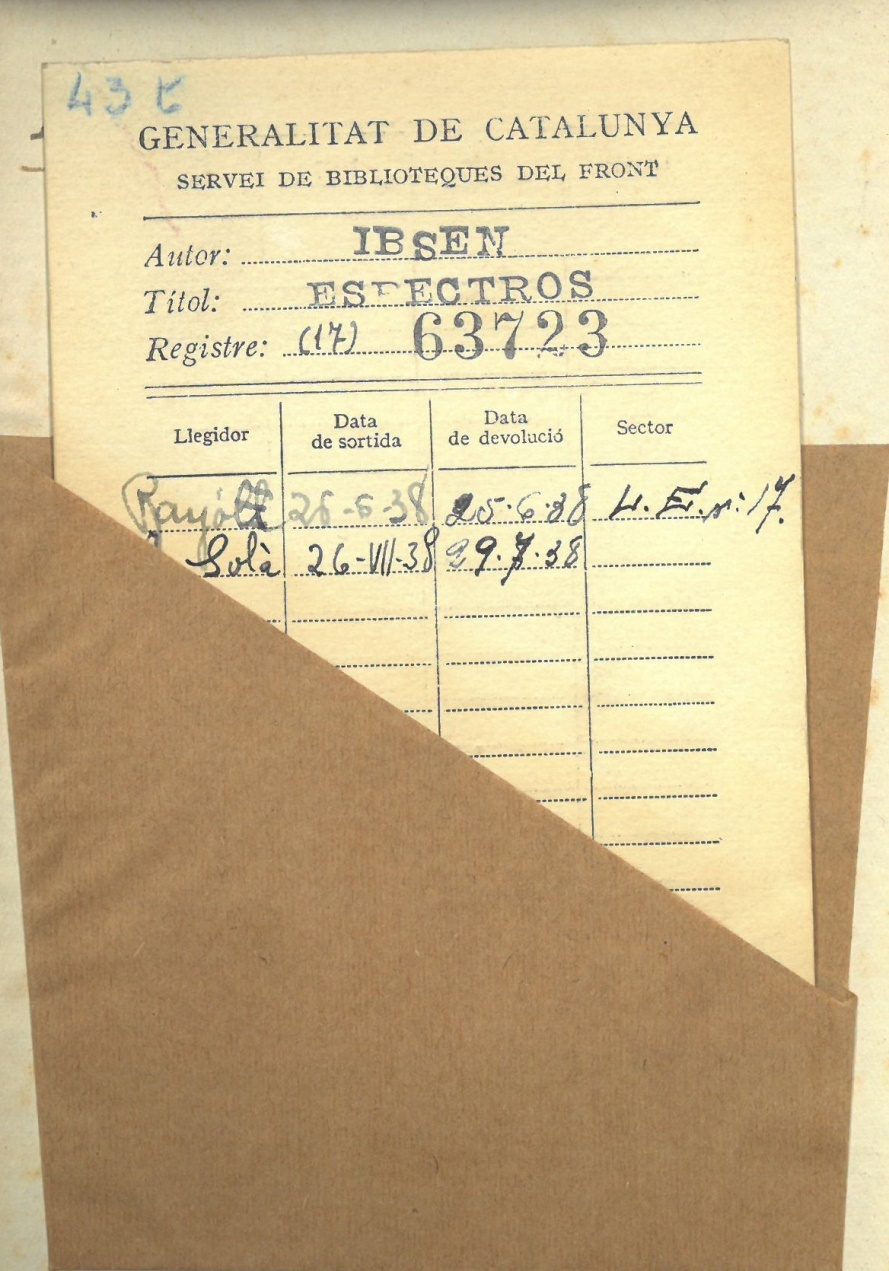 43
GENERALITAT DE CATALUNYA
SERVEI DE BIBLIOTEQUES DEL FRONT
Autor: IBSEN
Títol: ESPECTROS
Registre: (17) 63723
Llegidor Data de sortida Data de devolució Sector
25·6·38
Solà 26-VII-38 29.7.38